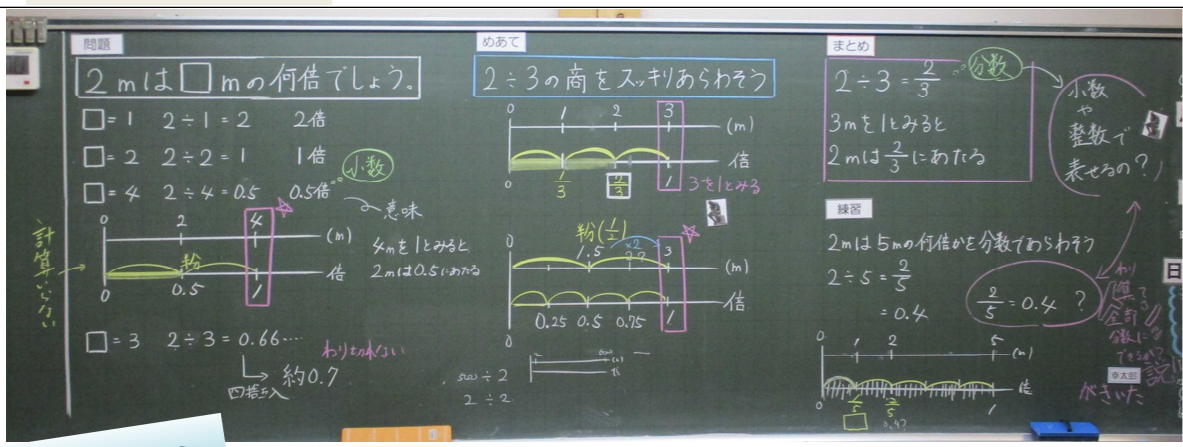 問題
2mは□mの何倍でしょう。
□=1 2÷1=2 2倍
□=2 2÷2=1 1倍
□=4 2÷4=0.5 0.5倍
小数
意味
4mを1とみると
2mは0.5にあたる
計算いらない
0 2 4 (m)
0 0.5 1 倍
□=3 2÷3=0.66…
わり切れない
約0.7
四捨五入
めあて
2÷3の商をスッキリあらわそう
0 1 2 3 (m)
0 1/3 2/3 1 倍
3を1とみる
0 1.5 3 (m)
0 0.25 0.5 0.75 1 倍
÷2
2÷2
まとめ
2÷3=2/3
分数
3mを1とみると
2mは2/3にあたる
小数
や
整数で
表せるの?
練習
2mは5mの何倍かを分数であらわそう
2÷5=2/5
=0.4
2/5=0.4 ?
0 1 2 5 (m)
0 1/5 2/5 1 倍
わり算って
全部
分数に
できるか?
説
がきいた
日